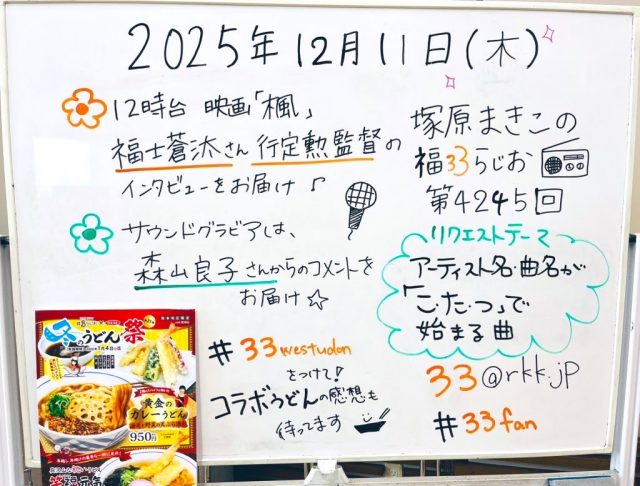 2025年12月11日(木)
12時台 映画「楓」
福士蒼汰さん 行定勲監督の
インタビューをお届け♪
サウンドグラビアは、
森山良子さんからのコメントを
お届け☆
塚原まきこの
福33らじお
第4245回
リクエストテーマ
アーティスト名・曲名が
「こ・た・つ」で
始まる曲
#33westudon
をつけて!
コラボうどんの感想も
待ってます
33@rkk.jp
#33fan
冬のうどん祭
黄金の
カレーうどん
950円